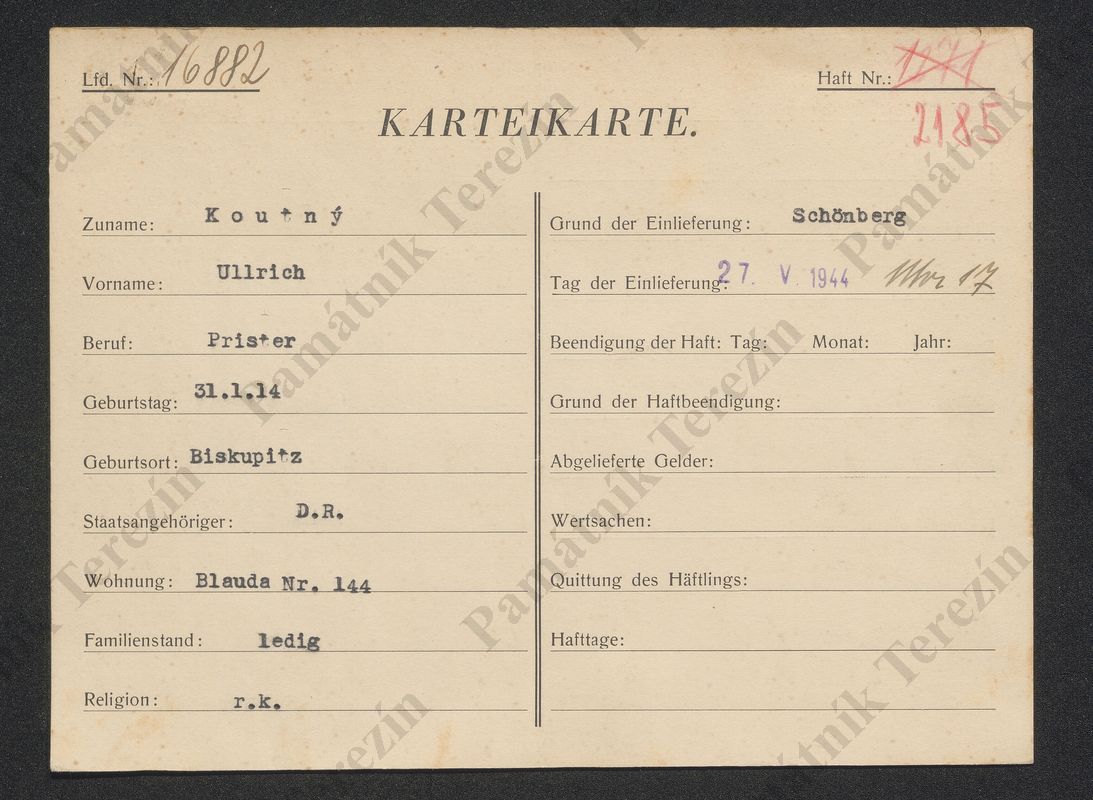 Lfd. Nr.: 16882
Haft Nr.: 1271
2185
KARTEIKARTE.
Zuname: Koutný
Vorname: Ullrich
Beruf: Prister
Geburtstag: 31.1.14
Geburtsort: Biskupitz
Staatsangehöriger: D.R.
Wohnung: Blauda Nr. 144
Familienstand: ledig
Religion: r.k.
Grund der Einlieferung: Schönberg
Tag der Einlieferung: 27. V 1944 17
Beendigung der Haft: Tag: Monat: Jahr:
Grund der Haftbeendigung:
Abgelieferte Gelder:
Wertsachen:
Quittung des Häftlings:
Hafttage:
Památník Terezín
Památník Terezín
Památník Terezín
Památník Terezín
Památník Terezín